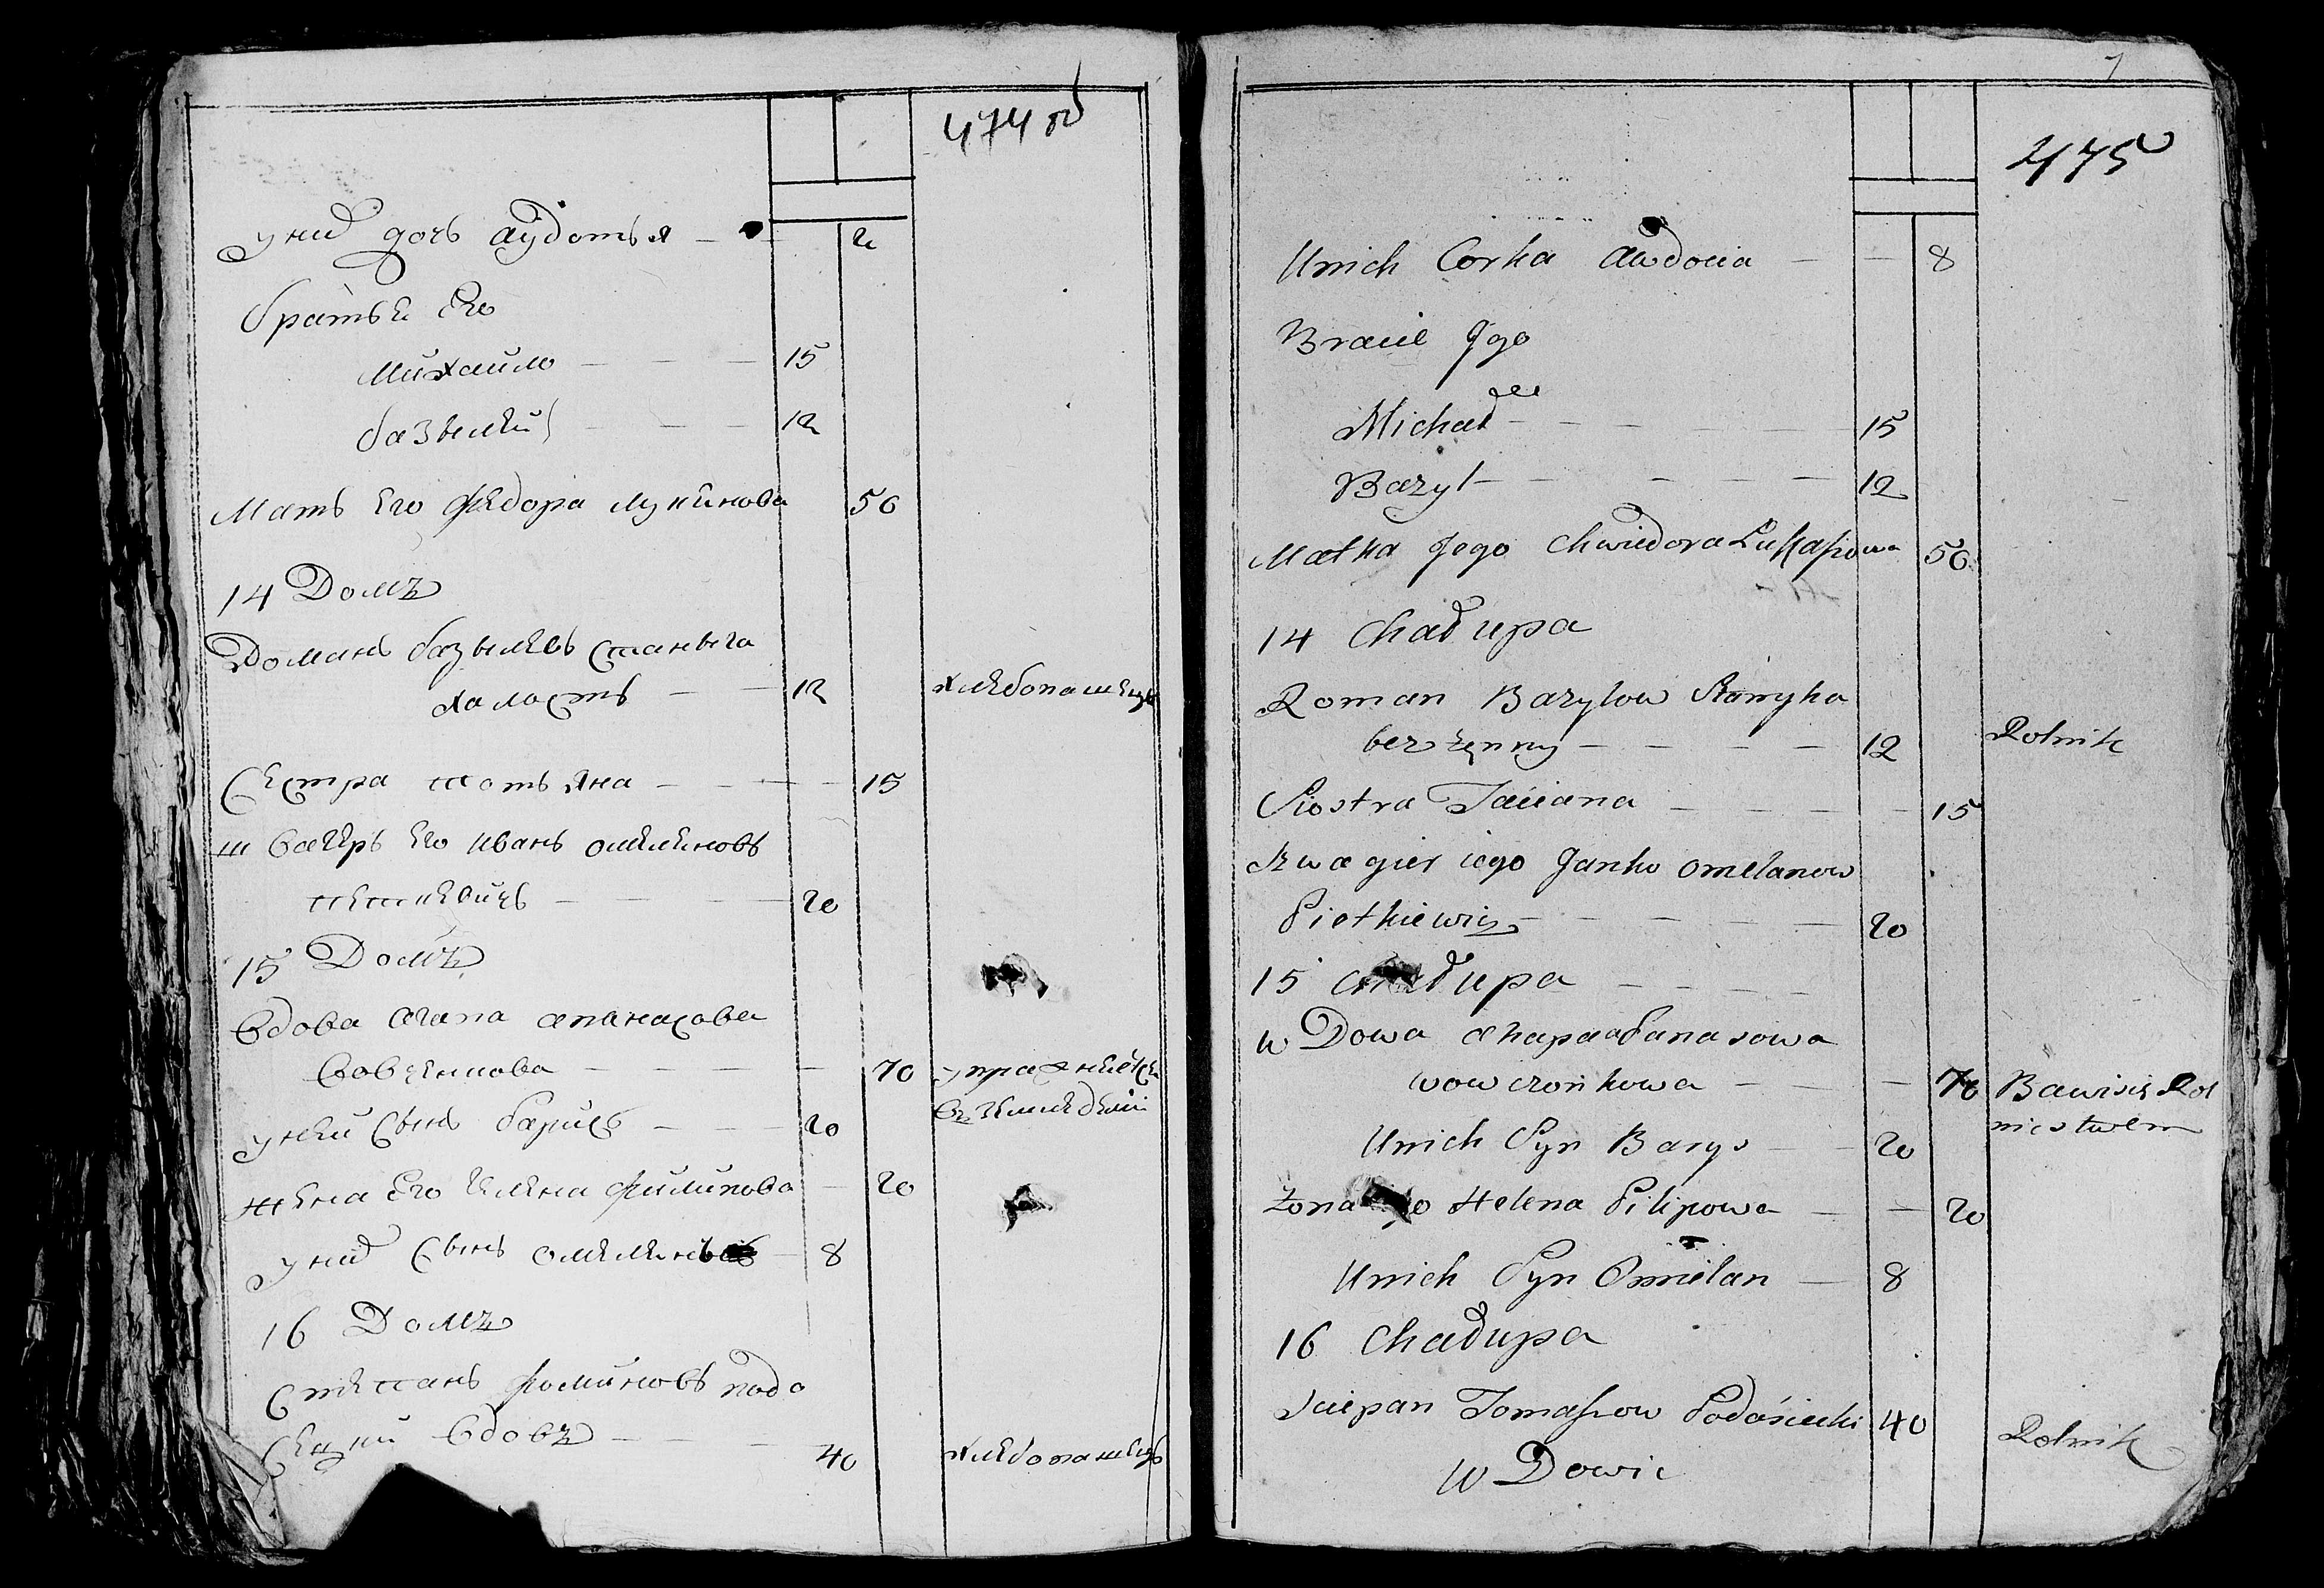 474 об
унид дочь аудотья — — 2
братье его
михайло — — — 15
базылей — — — 12
Мать его федора лукинова 50
14 Домъ
Романь базылевь станыга
халость — — 12 хлебопашець
сестра татьяна — — — 15
швагерь его ивань омеленовь
петкевичь — — — 20
15 Домъ
вдова агапа апанасова
вовченкова — — — — 70 упражняется
въ земледелии
уней сынь барись — — — 20
жена его елена филипова — 20
унид сынь омелень — 8
16 Домъ
степань фоминовь подо
сецкий вдовъ — — — 40 хлебопашець
7
475
Unich Corka Awdocia — — 8
Bracie Jgo
Michał — — — — 15
Bazyl — — — — 12
Matka Jego Chwiedora Łukaszowa 50
14 Chałupa
Roman Bazylow Stanyka
bezżęnny — — — — 12 Rolnik
Siostra Taciana — — — — 15
Szwagier iego Janko Omelanow
Pietkiewicz — — — — 20
15 Chałupa — — — —
wDowa Ahapa afanasowa
wowczonkowa — — — 70 Bawisię Rol
nictwem
Unich Syn Barys — — 20
Żona Jgo Helena Filipowa — — 20
Unich Syn Omielan — 8
16 Chałupa
Sciepan Tomaszow Podosiecki 40 Rolnik
wDowic